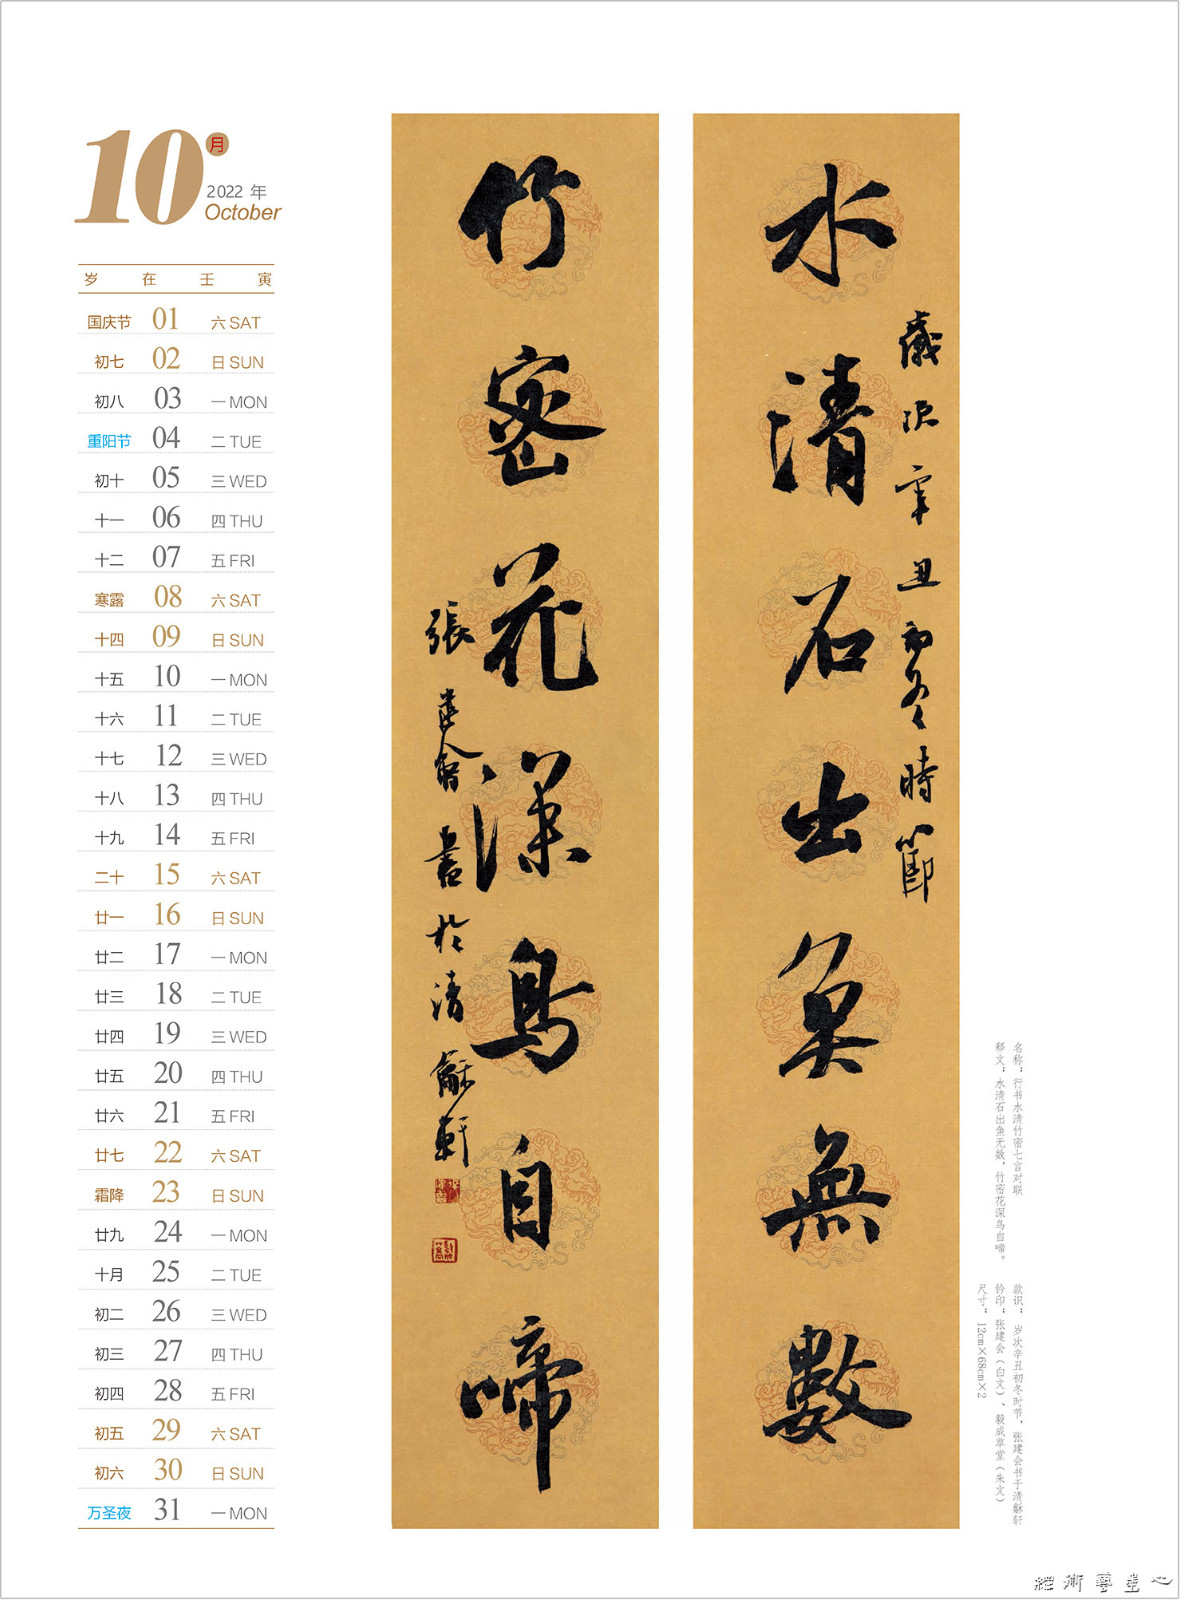 10月
2022 年
October
岁 在 壬 寅
国庆节 01 六 SAT
初七 02 日 SUN
初八 03 一 MON
重阳节 04 二 TUE
初十 05 三 WED
十一 06 四 THU
十二 07 五 FRI
寒露 08 六 SAT
十四 09 日 SUN
十五 10 一 MON
十六 11 二 TUE
十七 12 三 WED
十八 13 四 THU
十九 14 五 FRI
二十 15 六 SAT
廿一 16 日 SUN
廿二 17 一 MON
廿三 18 二 TUE
廿四 19 三 WED
廿五 20 四 THU
廿六 21 五 FRI
廿七 22 六 SAT
霜降 23 日 SUN
廿九 24 一 MON
十月 25 二 TUE
初二 26 三 WED
初三 27 四 THU
初四 28 五 FRI
初五 29 六 SAT
初六 30 日 SUN
万圣夜 31 一 MON
歲次辛丑初冬時節
水清石出魚無數
竹密花深鳥自啼
張建會書於清龢軒
名称：行书水清竹密七言对联
释文：水清石出鱼无数，竹密花深鸟自啼。
款识：岁次辛丑初冬时节，张建会书于清龢轩
钤印：张建会（白文）、毅成草堂（朱文）
尺寸：12cm×68cm×2